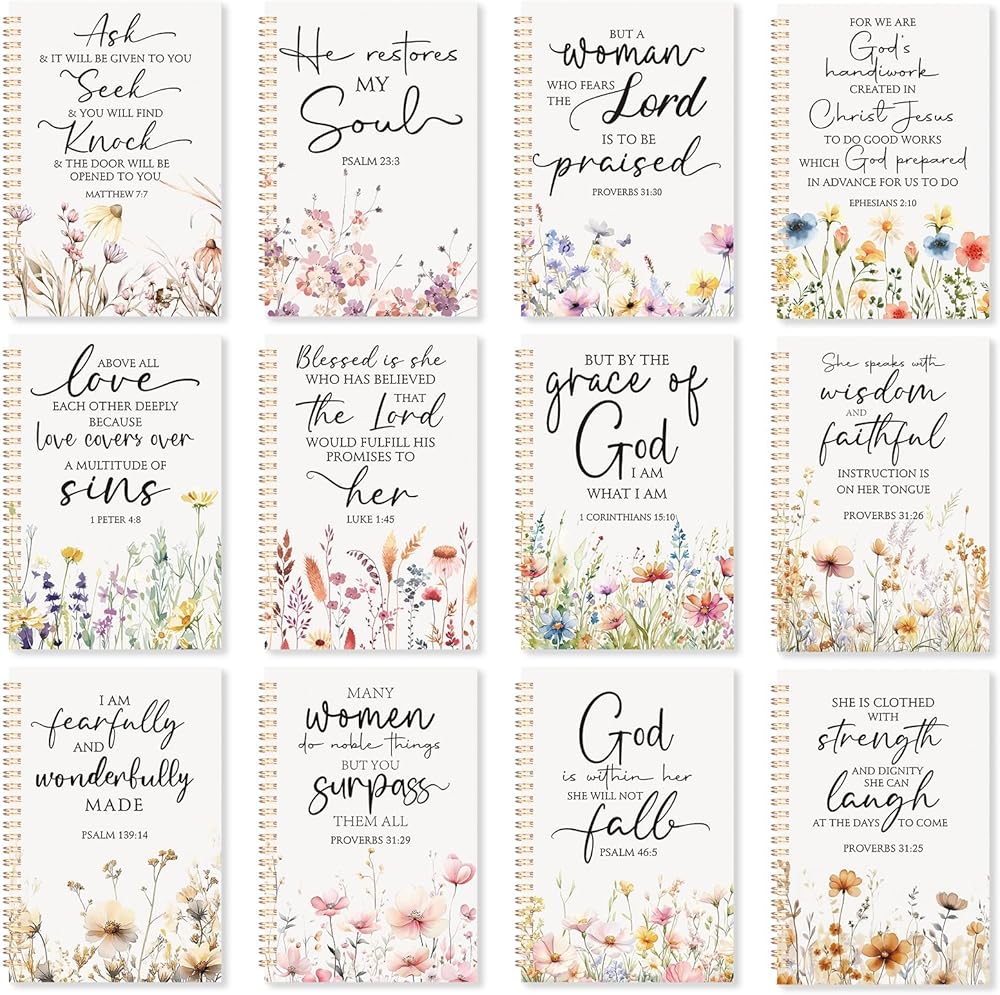 Ask
& IT WILL BE GIVEN TO YOU
Seek
& YOU WILL FIND
Knock
& THE DOOR WILL BE
OPENED TO YOU
MATTHEW 7:7
He restores
MY
Soul
PSALM 23:3
BUT A
woman
WHO FEARS
THE Lord
IS TO BE
praised
PROVERBS 31:30
FOR WE ARE
God's
handiwork
CREATED IN
Christ Jesus
TO DO GOOD WORKS
WHICH God prepared
IN ADVANCE FOR US TO DO
EPHESIANS 2:10
ABOVE ALL
love
EACH OTHER DEEPLY
BECAUSE
love covers over
A MULTITUDE OF
sins
1 PETER 4:8
Blessed is she
WHO HAS BELIEVED
THAT
the Lord
WOULD FULFILL HIS
PROMISES TO
her
LUKE 1:45
BUT BY THE
grace of
God
I AM
WHAT I AM
1 CORINTHIANS 15:10
She speaks with
wisdom
AND
faithful
INSTRUCTION IS
ON HER TONGUE
PROVERBS 31:26
I AM
fearfully
AND
wonderfully
MADE
PSALM 139:14
MANY
women
do noble things
BUT YOU
surpass
THEM ALL
PROVERBS 31:29
God
is within her
SHE WILL NOT
fall
PSALM 46:5
SHE IS CLOTHED
WITH
strength
AND DIGNITY
SHE CAN
laugh
AT THE DAYS TO COME
PROVERBS 31:25